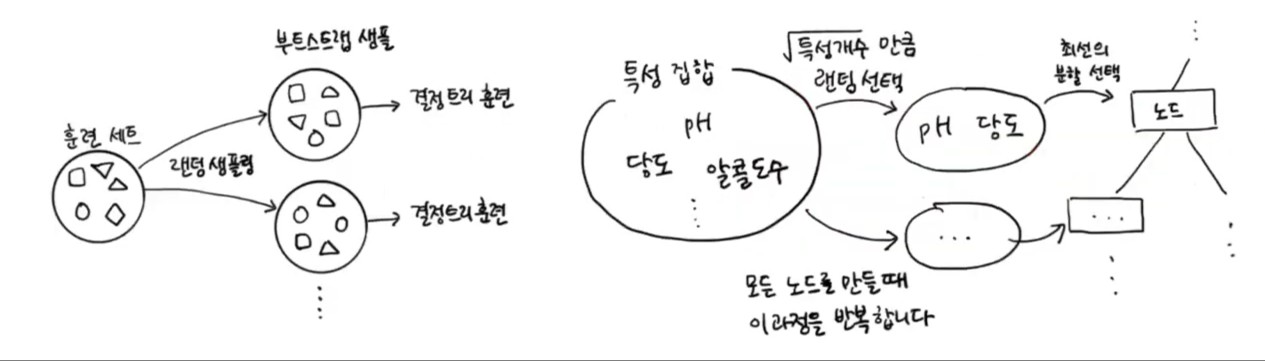 부트스트랩 샘플
결정트리 훈련
훈련 세트
랜덤 샘플링
결정트리 훈련
특성 집합
pH
당도 알콜도수
√특성개수 만큼
랜덤 선택
pH 당도
최선의
분할 선택
노드
...
...
모든 노드를 만들 때
이 과정을 반복합니다